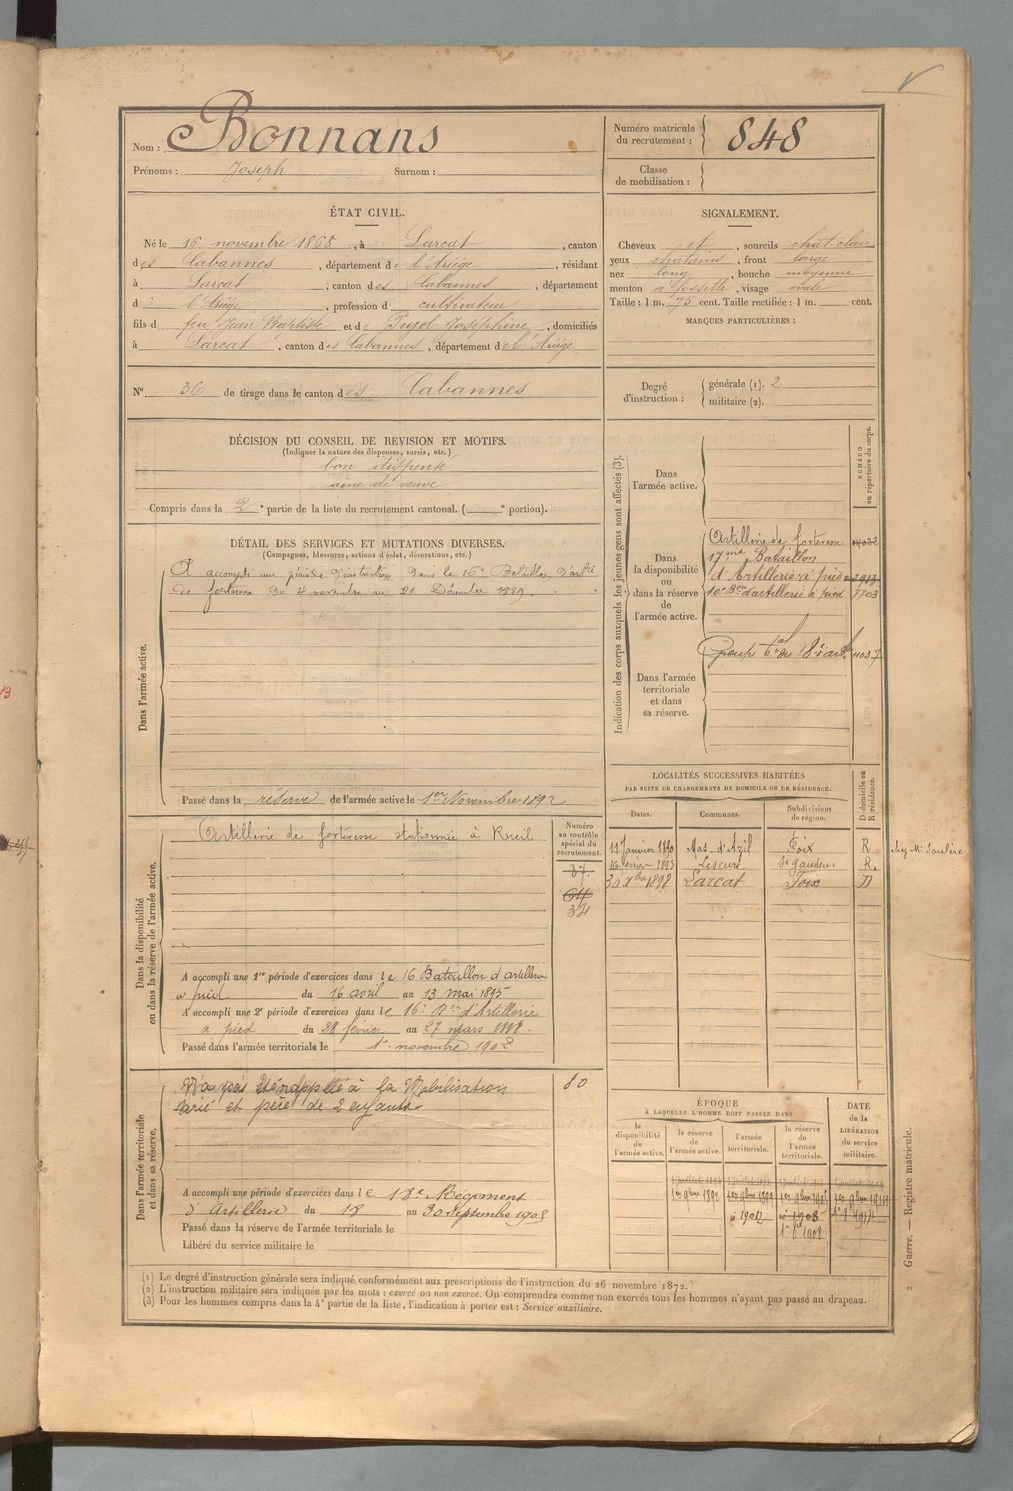 Nom : Bonnans
Prénoms : Joseph Surnom :
Numéro matricule du recrutement : 848
Classe de mobilisation :
ÉTAT CIVIL.
Né le 16 novembre 1868, à Larcat, canton
des Cabannes, département de l'Ariège, résidant
à Larcat, canton des Cabannes, département
d l'Ariège, profession d cultivateur
fils d feu Jean Baptiste et de Pujol Joséphine, domiciliés
à Larcat, canton des Cabannes, département de l'Ariège
N° 36 de tirage dans le canton des Cabannes
SIGNALEMENT.
Cheveux et, sourcils chat. clair
yeux chatains, front large
nez long, bouche moyenne
menton à fossette, visage ovale
Taille : 1 m. 75 cent. Taille rectifiée : 1 m. cent.
MARQUES PARTICULIÈRES :
Degré d'instruction : générale (1). 2
militaire (2).
DÉCISION DU CONSEIL DE REVISION ET MOTIFS.
(Indiquer la nature des dispenses, sursis, etc.)
bon dispensé
aîné de veuve
Compris dans la 2e partie de la liste du recrutement cantonal. ( e portion).
DÉTAIL DES SERVICES ET MUTATIONS DIVERSES.
(Campagnes, blessures, actions d'éclat, décorations, etc.)
Dans l'armée active.
A accompli une période d'instruction dans le 16e Bataillon d'artie
de forteresse du 4 novembre au 21 Décembre 1889.
Passé dans la réserve de l'armée active le 1er Novembre 1892
Indication des corps auxquels les jeunes gens sont affectés (3).
NUMÉRO au répertoire du corps.
Dans l'armée active.
Dans la disponibilité ou dans la réserve de l'armée active.
Artillerie de forteresse
17me Bataillon
d'Artillerie à pied
10e Bon d'artillerie à pied 7703
Dans l'armée territoriale et dans sa réserve.
Dans la disponibilité ou dans la réserve de l'armée active.
Numéro au contrôle spécial du recrutement.
Artillerie de forteresse stationnée à Rueil
87
64
34
A accompli une 1re période d'exercices dans le 16 Bataillon d'artillerie
à pied du 16 avril au 13 mai 1895
A accompli une 2e période d'exercices dans le 16e Bon d'Artillerie
à pied du 28 février au 27 mars 1898.
Passé dans l'armée territoriale le 1er novembre 1902
LOCALITÉS SUCCESSIVES HABITÉES
PAR SUITE DE CHANGEMENTS DE DOMICILE OU DE RÉSIDENCE.
Dates. Communes. Subdivisions de région. D domicile ou R résidence.
11 Janvier 1890 Mas-d'Azil Foix R
16 février 1893 Lescure St Gaudens R.
30 Xbre 1898 Larcat Foix D
Dans l'armée territoriale et dans sa réserve.
N'a pas été rappelé à la Mobilisation 80
Marié et père de 2 enfants
A accompli une période d'exercices dans le 18e Régiment
d'Artillerie du 18 au 30 Septembre 1905
Passé dans la réserve de l'armée territoriale le
Libéré du service militaire le
ÉPOQUE
À LAQUELLE L'HOMME DOIT PASSER DANS
la disponibilité de l'armée active.
la réserve de l'armée active.
l'armée territoriale.
la réserve de l'armée territoriale.
DATE de la LIBÉRATION du service militaire.
1er 9bre 1892
(1) Le degré d'instruction générale sera indiqué conformément aux prescriptions de l'instruction du 26 novembre 1872.
(2) L'instruction militaire sera indiquée par les mots : exercé ou non exercé. On comprendra comme non exercés tous les hommes n'ayant pas passé au drapeau.
(3) Pour les hommes compris dans la 4e partie de la liste, l'indication à porter est : Service auxiliaire.
2 Guerre. — Registre matricule.